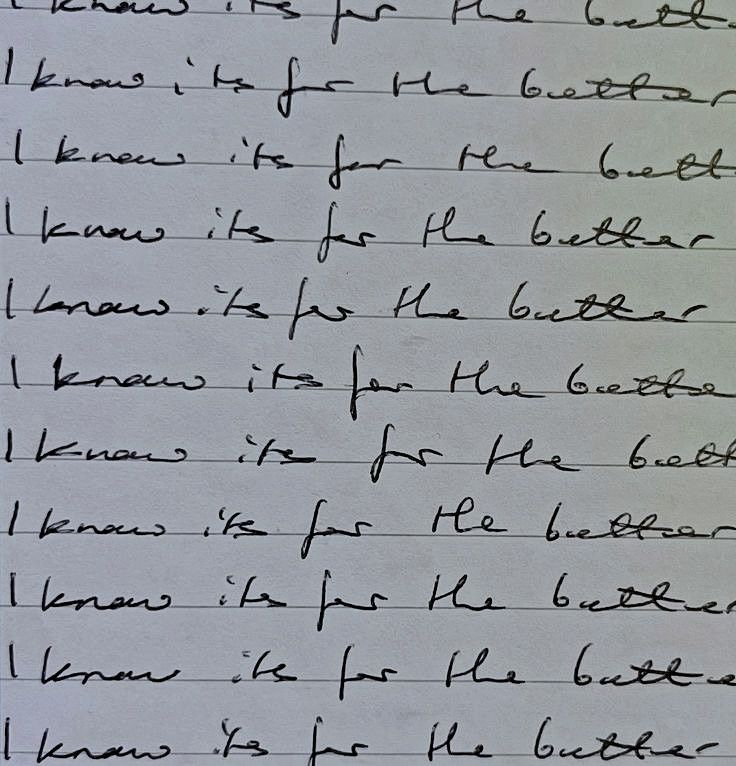 I know its for the bett
I know its for the better
I know its for the bett
I know its for the better
I know its for the better
I know its for the bette
I know its for the bett
I know its for the better
I know its for the better
I know its for the bette
I know its for the better